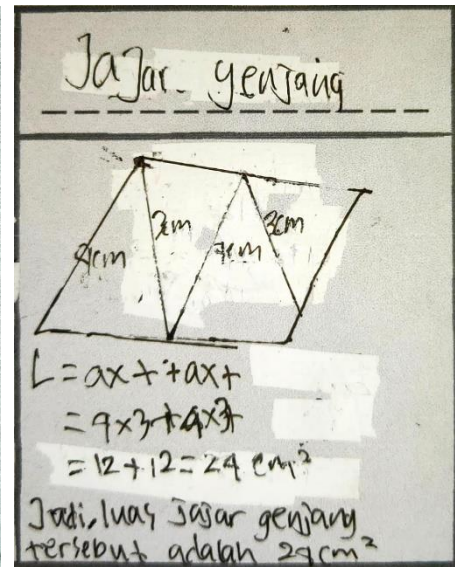 Jajar genjang
4cm
3cm
3cm
L = axt + axt
= 4x3 + 4x3
= 12 + 12 = 24 cm²
Jadi, luas jajar genjang
tersebut adalah 24cm²